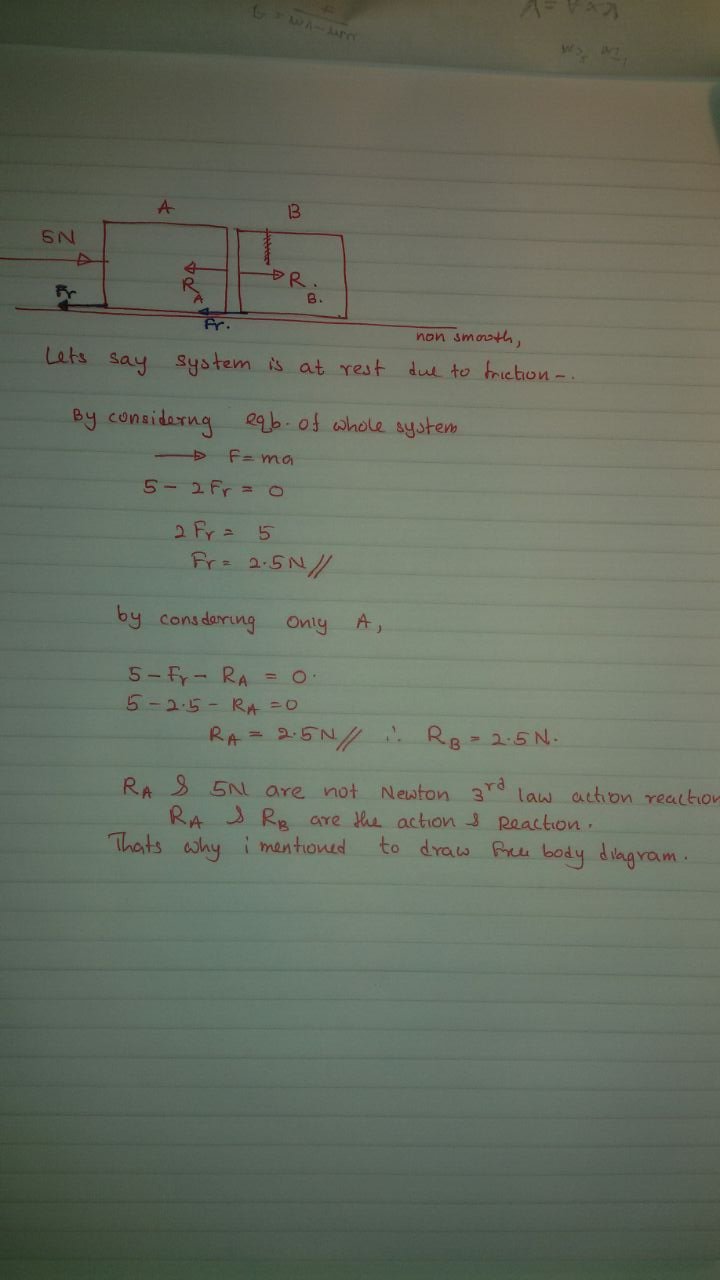 A B
5N
R A
R B.
Fr
Fr.
non smooth,
Lets say system is at rest due to friction -.
By considerng eqb. of whole system
→ F = ma
5 - 2Fr = 0
2Fr = 5
Fr = 2.5N //
by consdering only A,
5 - Fr - RA = 0.
5 - 2.5 - RA = 0
RA = 2.5N // ∴ RB = 2.5N.
RA & 5N are not Newton 3rd law action reaction
RA & RB are the action & Reaction.
Thats why i mentioned to draw free body diagram.